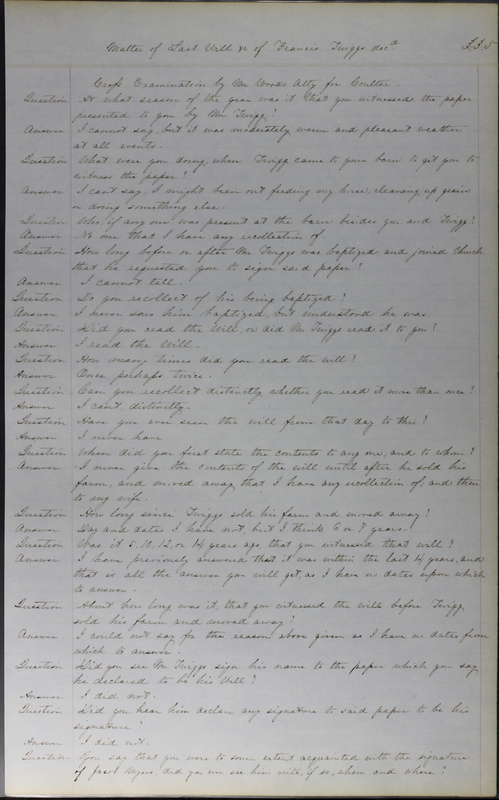 Matter of Last Will &c of Francis Twiggs decd 335
Cross Examination by Mr Woods Atty for Coulter.
Question At what season of the year was it that you witnessed the paper
presented to you by Mr Twigg?
Answer I cannot say but it was moderately warm and pleasant weather
at all events.
Question What were you doing when Twigg came to your barn to get you to
witness the paper?
Answer I cant say, I might been out feeding my horse, cleaning up grain
or doing something else.
Question Who, if any one was present at the barn besides you and Twigg?
Answer No one that I have any recollection of
Question How long before or after Mr Twiggs was baptized and joined Church
that he requested you to sign said paper?
Answer I cannot tell.
Question Do you recollect of his being baptized?
Answer I never saw him baptized, but understood he was
Question Did you read the Will, or did Mr Twiggs read it to you?
Answer I read the Will.
Question How many times did you read the will?
Answer Once perhaps twice.
Question Can you recollect distinctly whether you read it more than once?
Answer I can't distinctly.
Question Have you ever seen the will from that day to this?
Answer I never have
Question When did you first state the contents to any one, and to whom?
Answer I never give the contents of the will until after he sold his
farm, and moved away that I have any recollection of; and then
to my wife.
Question How long since Twiggs sold his farm and moved away?
Answer Day and dates I have not, but I think 6 or 7 years.
Question Was it 5. 10. 12, or 14 years ago, that you witnessed that will?
Answer I have previously answered that it was within the last 14 years, and
that is all the answer you will get, as I have no dates upon which
to answer.
Question About how long was it, that you witnessed the will before Twigg
sold his farm and moved away?
Answer I could not say for the reason above given as I have no dates from
which to answer.
Question Did you see Mr Twiggs sign his name to the paper which you say
he declared to be his Will?
Answer I did not.
Question Did you hear him declare any signature to said paper to be his
signature?
Answer I did not.
Question You say that you were to some extent acquainted with the signature
of Jacob Myers, did you ever see him write, if so, when and where?